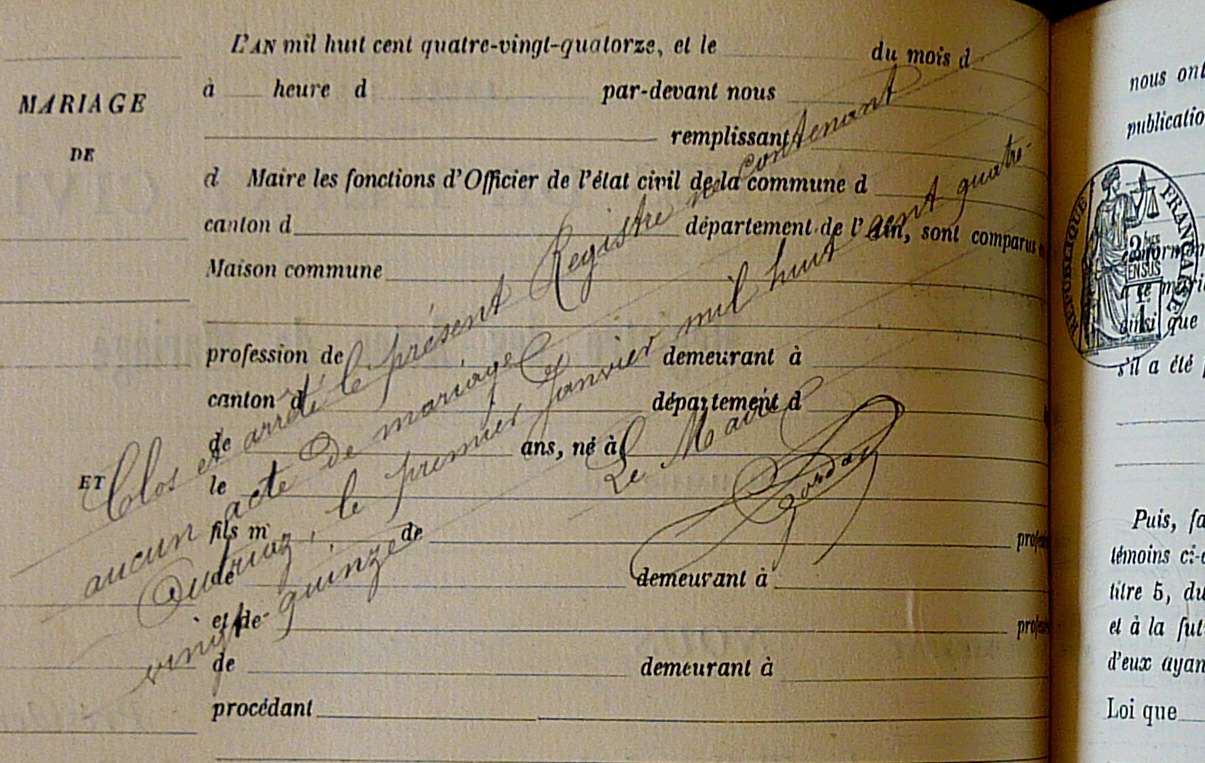 L'AN mil huit cent quatre-vingt-quatorze, et le du mois d
à heure d par-devant nous
MARIAGE
DE
remplissant
d Maire les fonctions d'Officier de l'état civil de la commune d
canton d département de l'Ain, sont comparus
Maison commune
profession de demeurant à
canton d département d
de ans, né à
ET
le
fils m de
de demeurant à
et de
de demeurant à
procédant
Clos et arrêté le présent Registre ne contenant
aucun acte de mariage
le premier Janvier mil huit cent quatre-
vingt quinze
Le Maire
nous ont
publicatio
RÉPUBLIQUE FRANÇAISE
conformém
ainsi que
s'il a été
Puis, fa
témoins ci-
titre 5, du
et à la fut
d'eux ayan
Loi que